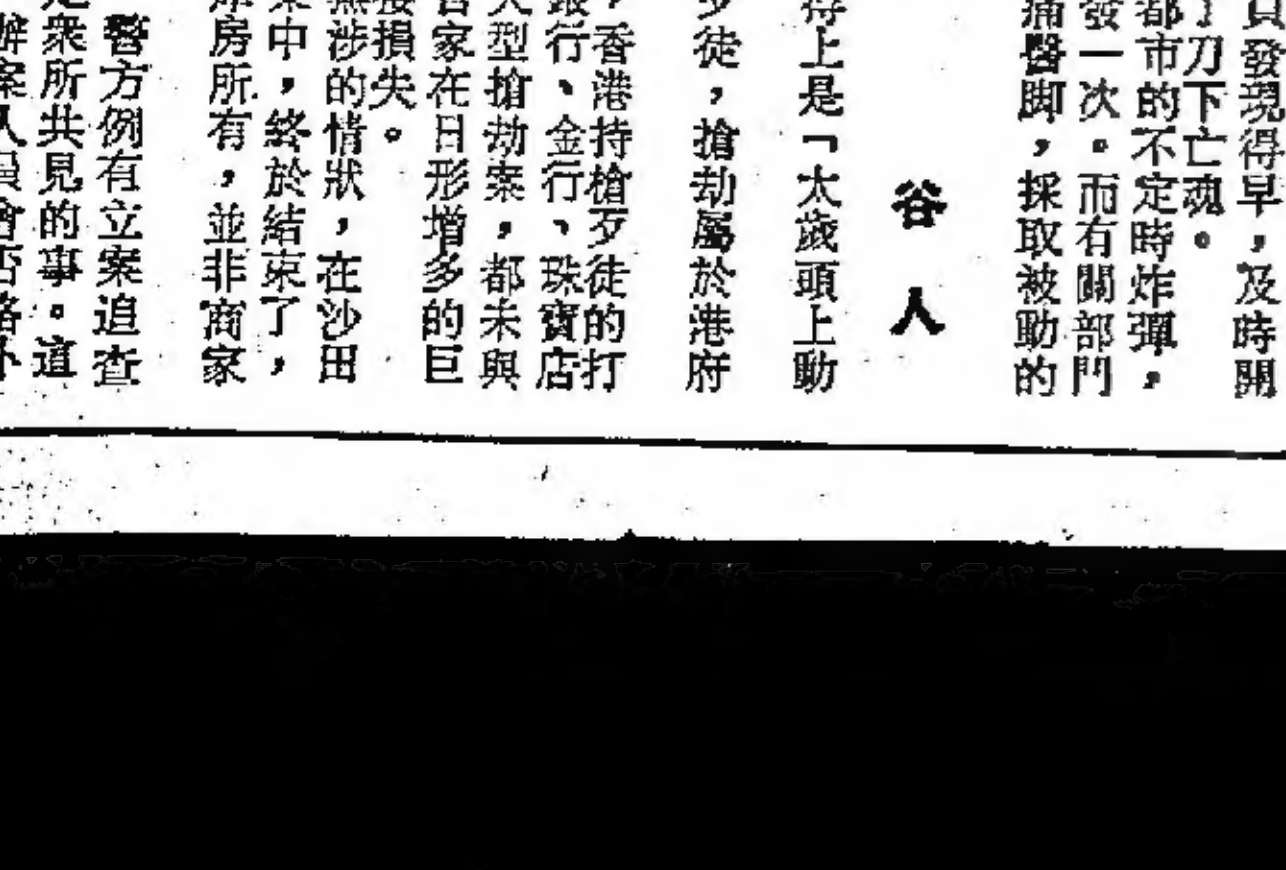 員發現得早，及時開
了刀下亡魂。
都市的不定時炸彈，
發一次。而有關部門
痛醫脚，採取被動的
谷人
得上是「太歲頭上動
歹徒，搶劫屬於港府
，香港持槍歹徒的打
銀行、金行、珠寶店
大型搶劫案，都未與
家在日形增多的巨
接損失。
無涉的情狀，在沙田
案中，終於結束了，
房所有，並非商家
警方例有立案追查
衆所共見的事。這
辦案人員會否格外